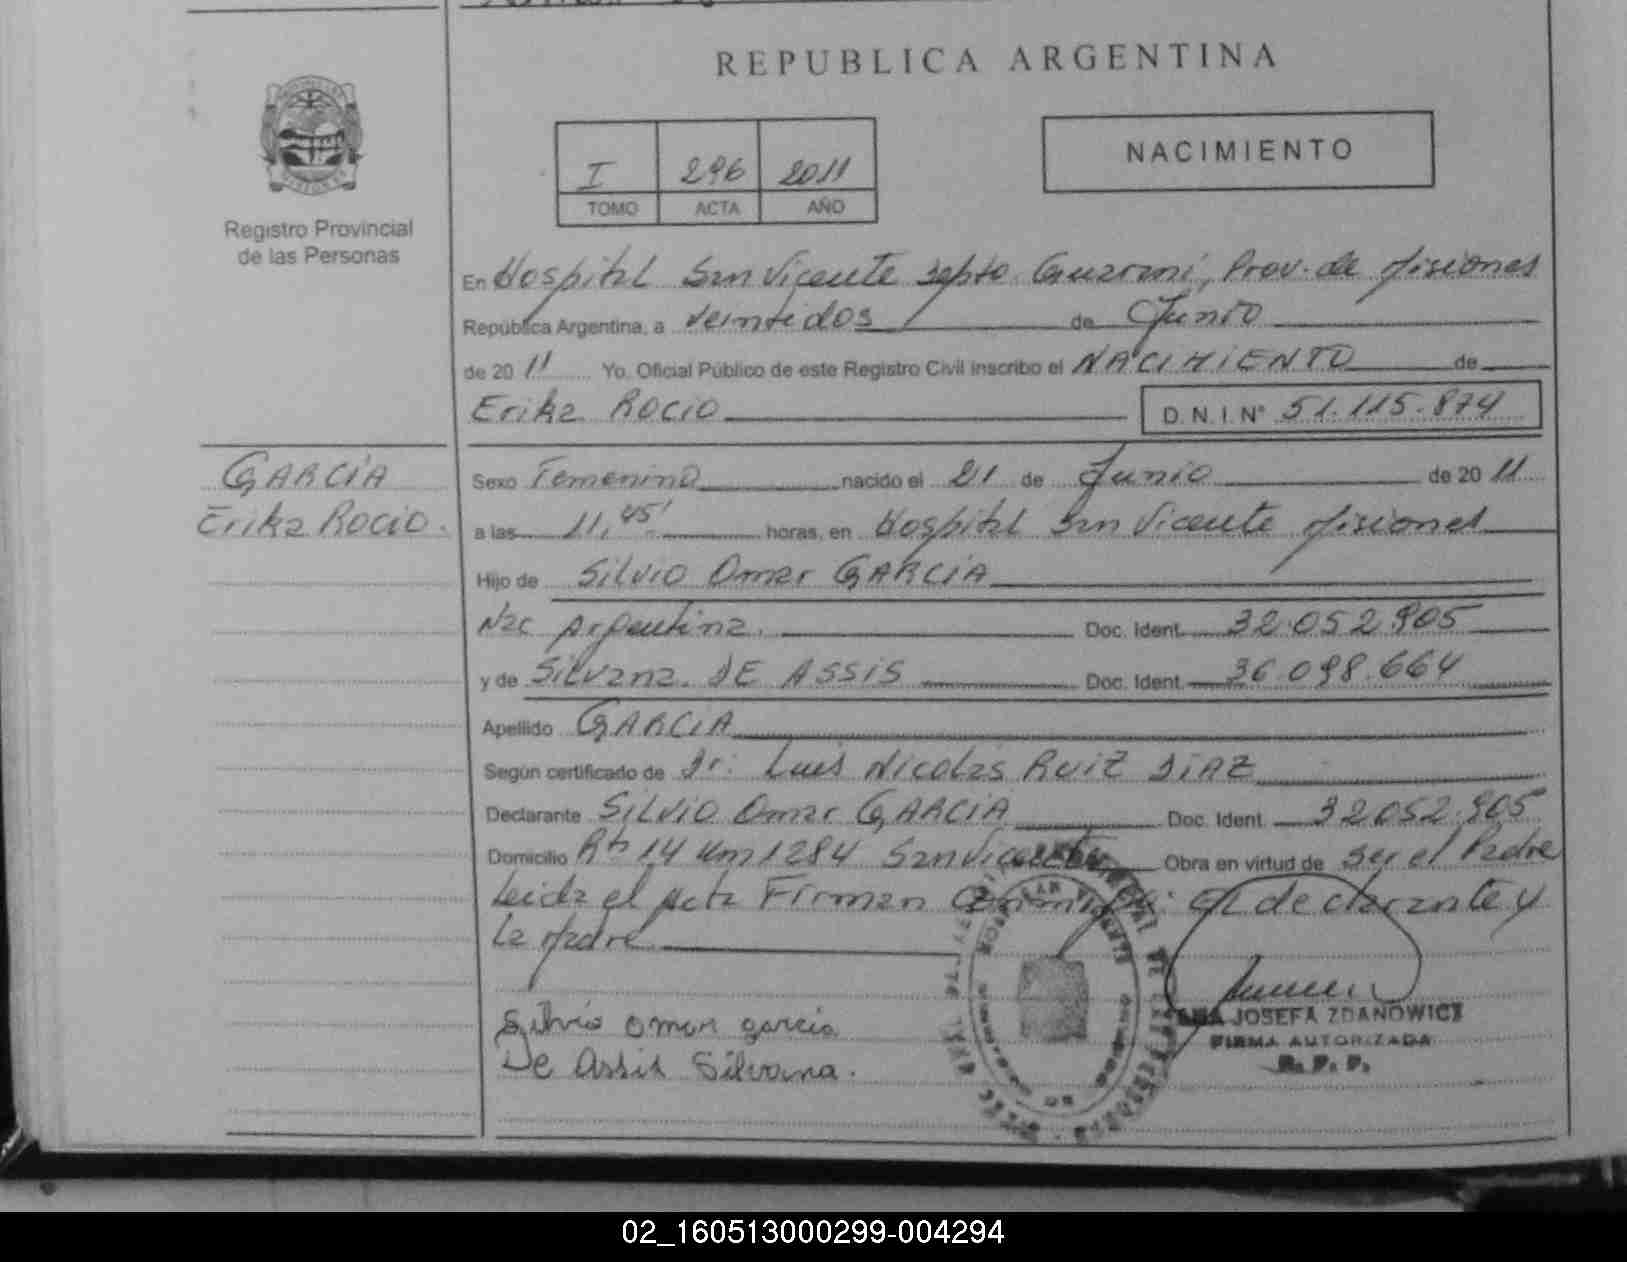 REPUBLICA ARGENTINA
NACIMIENTO
I 296 2011
TOMO ACTA AÑO
Registro Provincial
de las Personas
En Hospital San Vicente Depto. Guarani, Prov. de Misiones
República Argentina, a veintidos de Junio
de 2011 Yo. Oficial Público de este Registro Civil inscribo el NACIMIENTO de
Erika ROCIO D.N.I. Nº 51.115.874
GARCIA
Erika ROCIO.
Sexo Femenino nacido el 21 de Junio de 2011
a las 11,45' horas, en Hospital San Vicente Misiones
Hijo de Silvio Omar GARCIA
Nac Argentina. Doc. Ident. 32.052.905
y de Silvana DE ASSIS Doc. Ident. 36.098.664
Apellido GARCIA
Según certificado de Dr. Luis Nicolas RUIZ DIAZ
Declarante Silvio Omar GARCIA Doc. Ident. 32.052.905
Domicilio Rta 14 Km 1284 San Vicente Obra en virtud de ser el Padre
Leida el acta Firman el declarante y
la Madre
Silvio omar garcia
De Assis Silvana.
JOSEFA ZDANOWICZ
FIRMA AUTORIZADA
R. P. P.
02_160513000299-004294